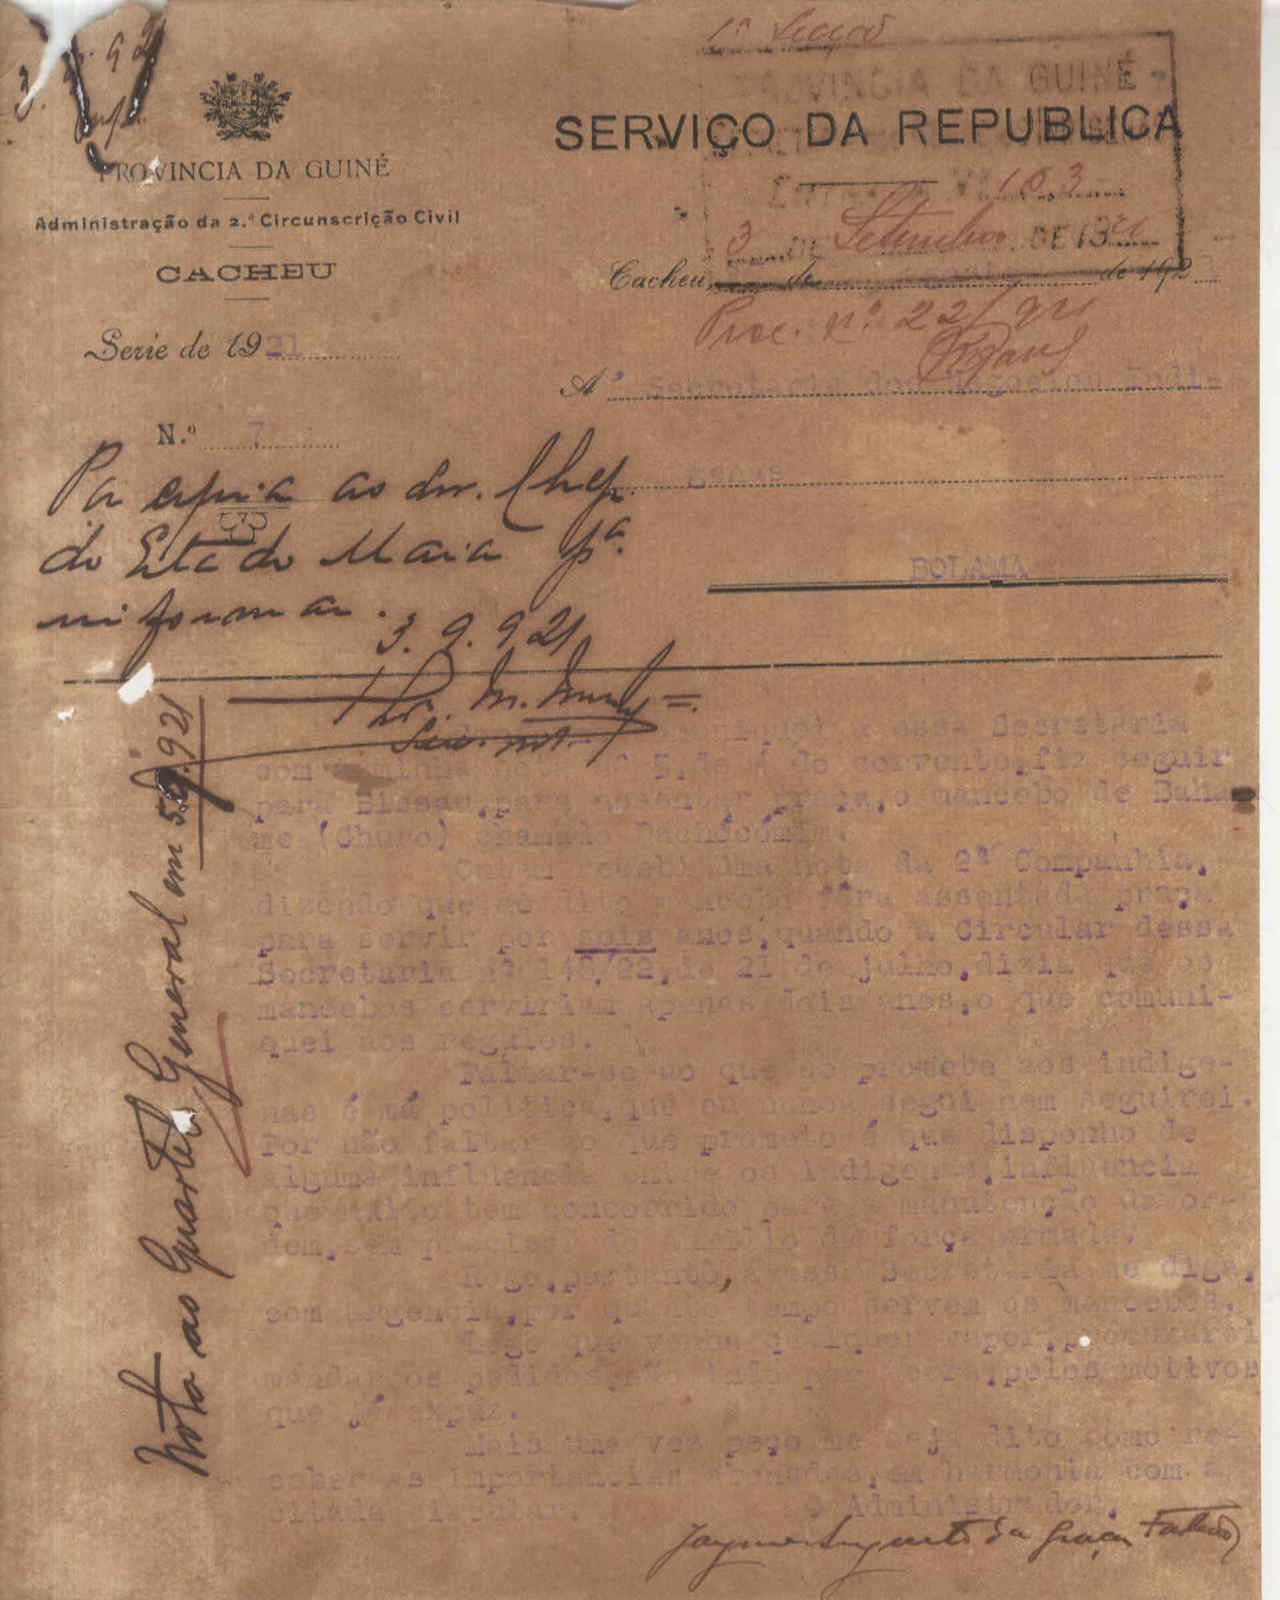 1ª Secção
PROVINCIA DA GUINÉ
SERVIÇO DA REPUBLICA
103
3 DE Setembro DE 1921
PROVINCIA DA GUINÉ
Administração da 2.ª Circunscrição Civil
CACHEU
Cacheu, de de 192
Proc. nº 22/921
Serie de 1921
A' Secretaria dos Negocios Indi-
genas
N.º 7
BOLAMA
Por copia ao snr. Chefe
do Estado Maior pª
informar.
3.9.921
Nota ao Quartel General em 5.9.921
essa Secretaria
com a minha nota nº 5, de 4 do corrente, fiz seguir
para Bissau, para assentar praça, o mancebo de
(Churo) chamado
recebi uma nota da 2ª Companhia,
dizendo que ao dito mancebo fôra assentada praça
para servir por seis anos, quando a Circular dessa
Secretaria nº 140/22, de 21 de julho, dizia que os
mancebos serviriam apenas dois anos, o que comuni-
quei aos regulos.
Faltar-se ao que se promete aos indige-
nas é má politica, que eu nunca segui nem seguirei.
Por não faltar ao que prometo é que disponho de
alguma influencia entre os indigenas, influencia
que muito tem concorrido para a manutenção da or-
dem, sem precisar do auxilio da força armada.
Rogo, portanto, a essa Secretaria me diga,
com urgencia, por quanto tempo servem os mancebos.
Logo que venha qualquer vapor, procurarei
mandar os pedidos, não indo por terra, pelos motivos
que já expuz.
Mais uma vez peço me seja dito como re-
ceber as importancias abonadas, em harmonia com a
citada circular.
O Administrador,